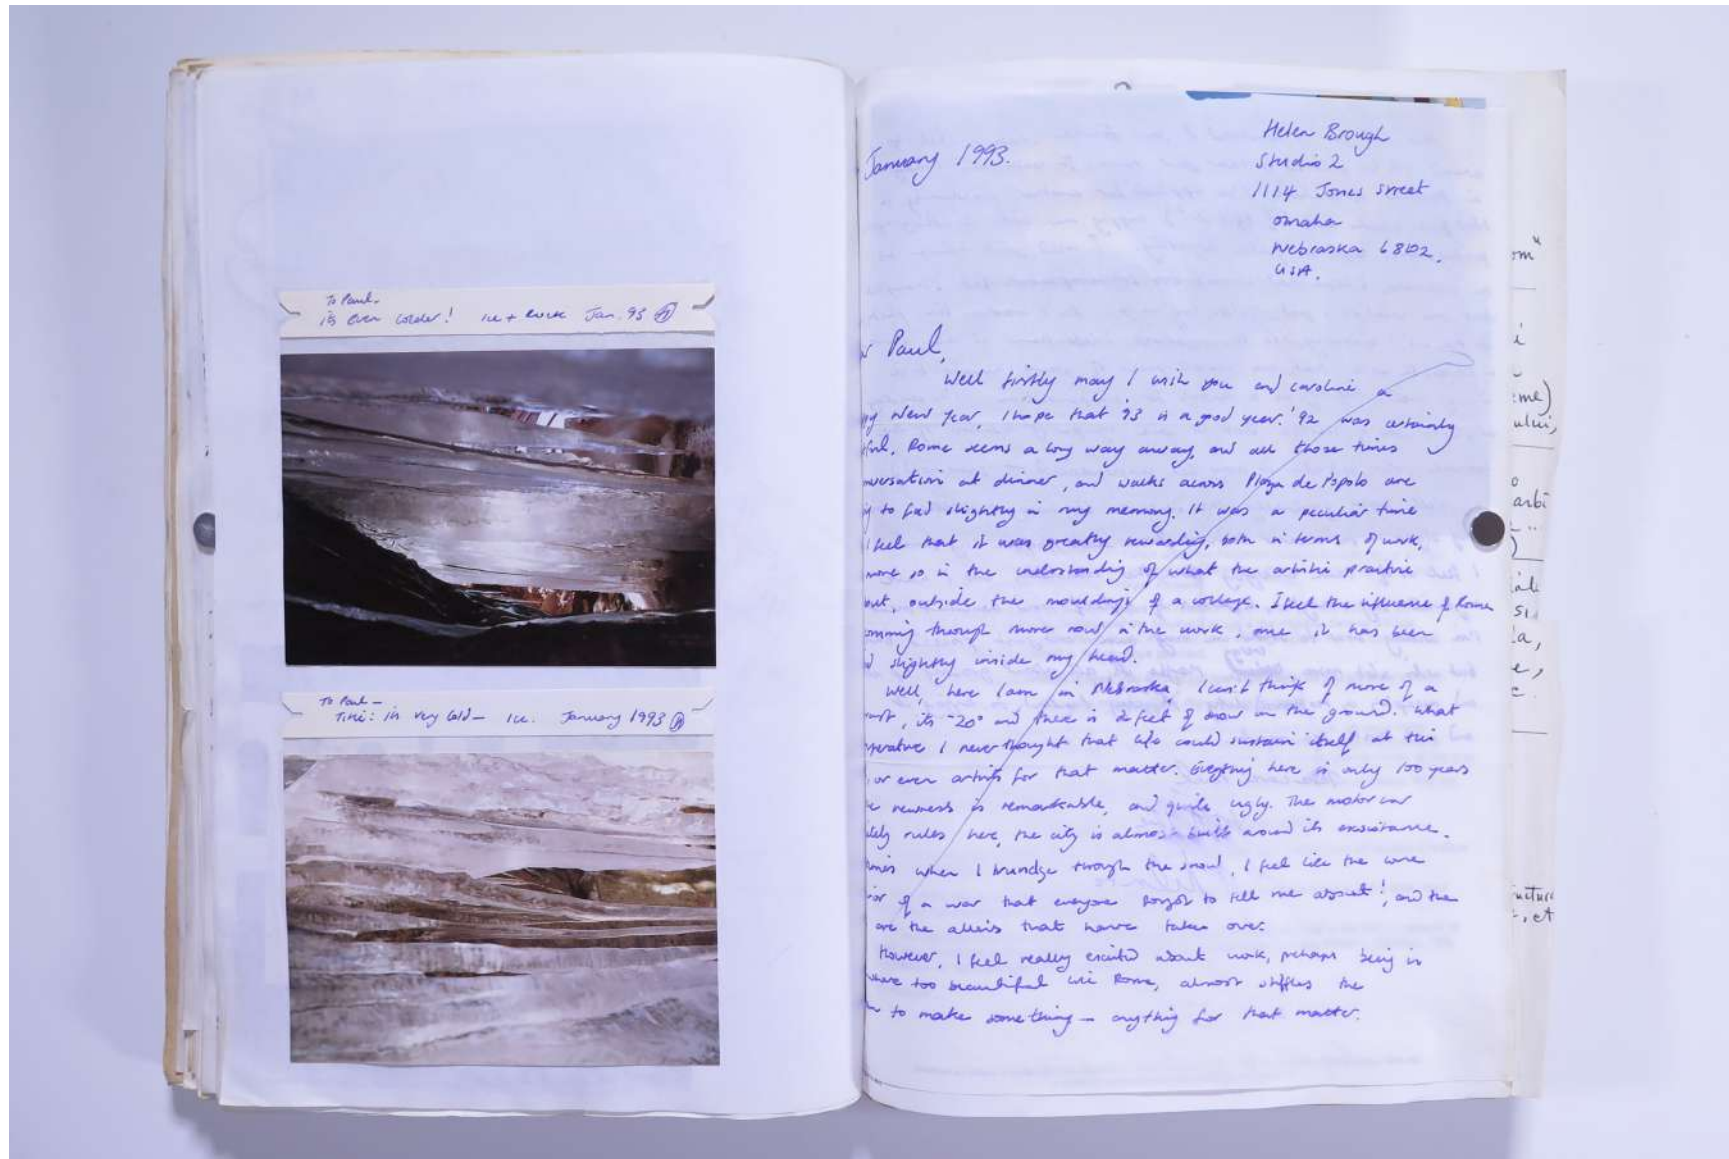 To Paul-
it's even colder! Ice + Jan. 93
To Paul —
Title: it's very cold — Ice. January 1993
January 1993.
Helen Brough
Studio 2
1114 Jones Street
Omaha
Nebraska 68102.
USA.
Paul,
Well firstly may I wish you and Caroline a
New Year, I hope that '93 is a good year. '92 was certainly
Rome seems a long way away, and all those times
at dinner, and walks across Piaza de Popolo are
to fad slightly in my memory. It was a peculiar time
feel that it was greatly rewarding, both in terms of work,
more so in the understanding of what the artistic practice
out, outside the mouldings of a college. I feel the influence of Rome
through more now in the work, once it has been
slightly inside my head.
Well, here I am in Nebraska, I can't think of more of a
its -20° and there is 2 feet of snow on the ground. What
I never thought that life could sustain itself at this
or even artists for that matter. Everything here is only 100 years
newness is remarkable, and quite ugly. The motor car
rules here, the city is almost built around its
when I trundge through the snow, I feel like the lone
of a war that everyone forgot to tell me about!, and the
are the aliens that have taken over.
However, I feel really excited about work, perhaps being in
too beautiful like Rome, almost stiffles the
to make something — anything for that matter.
om"
eme)
ului,
arbi
si,
la,
e,
ructure
, et